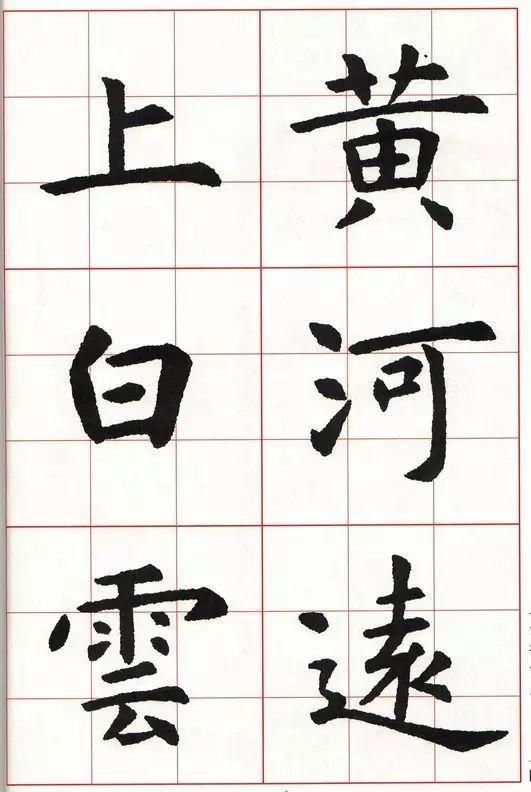 黄河遠
上白雲